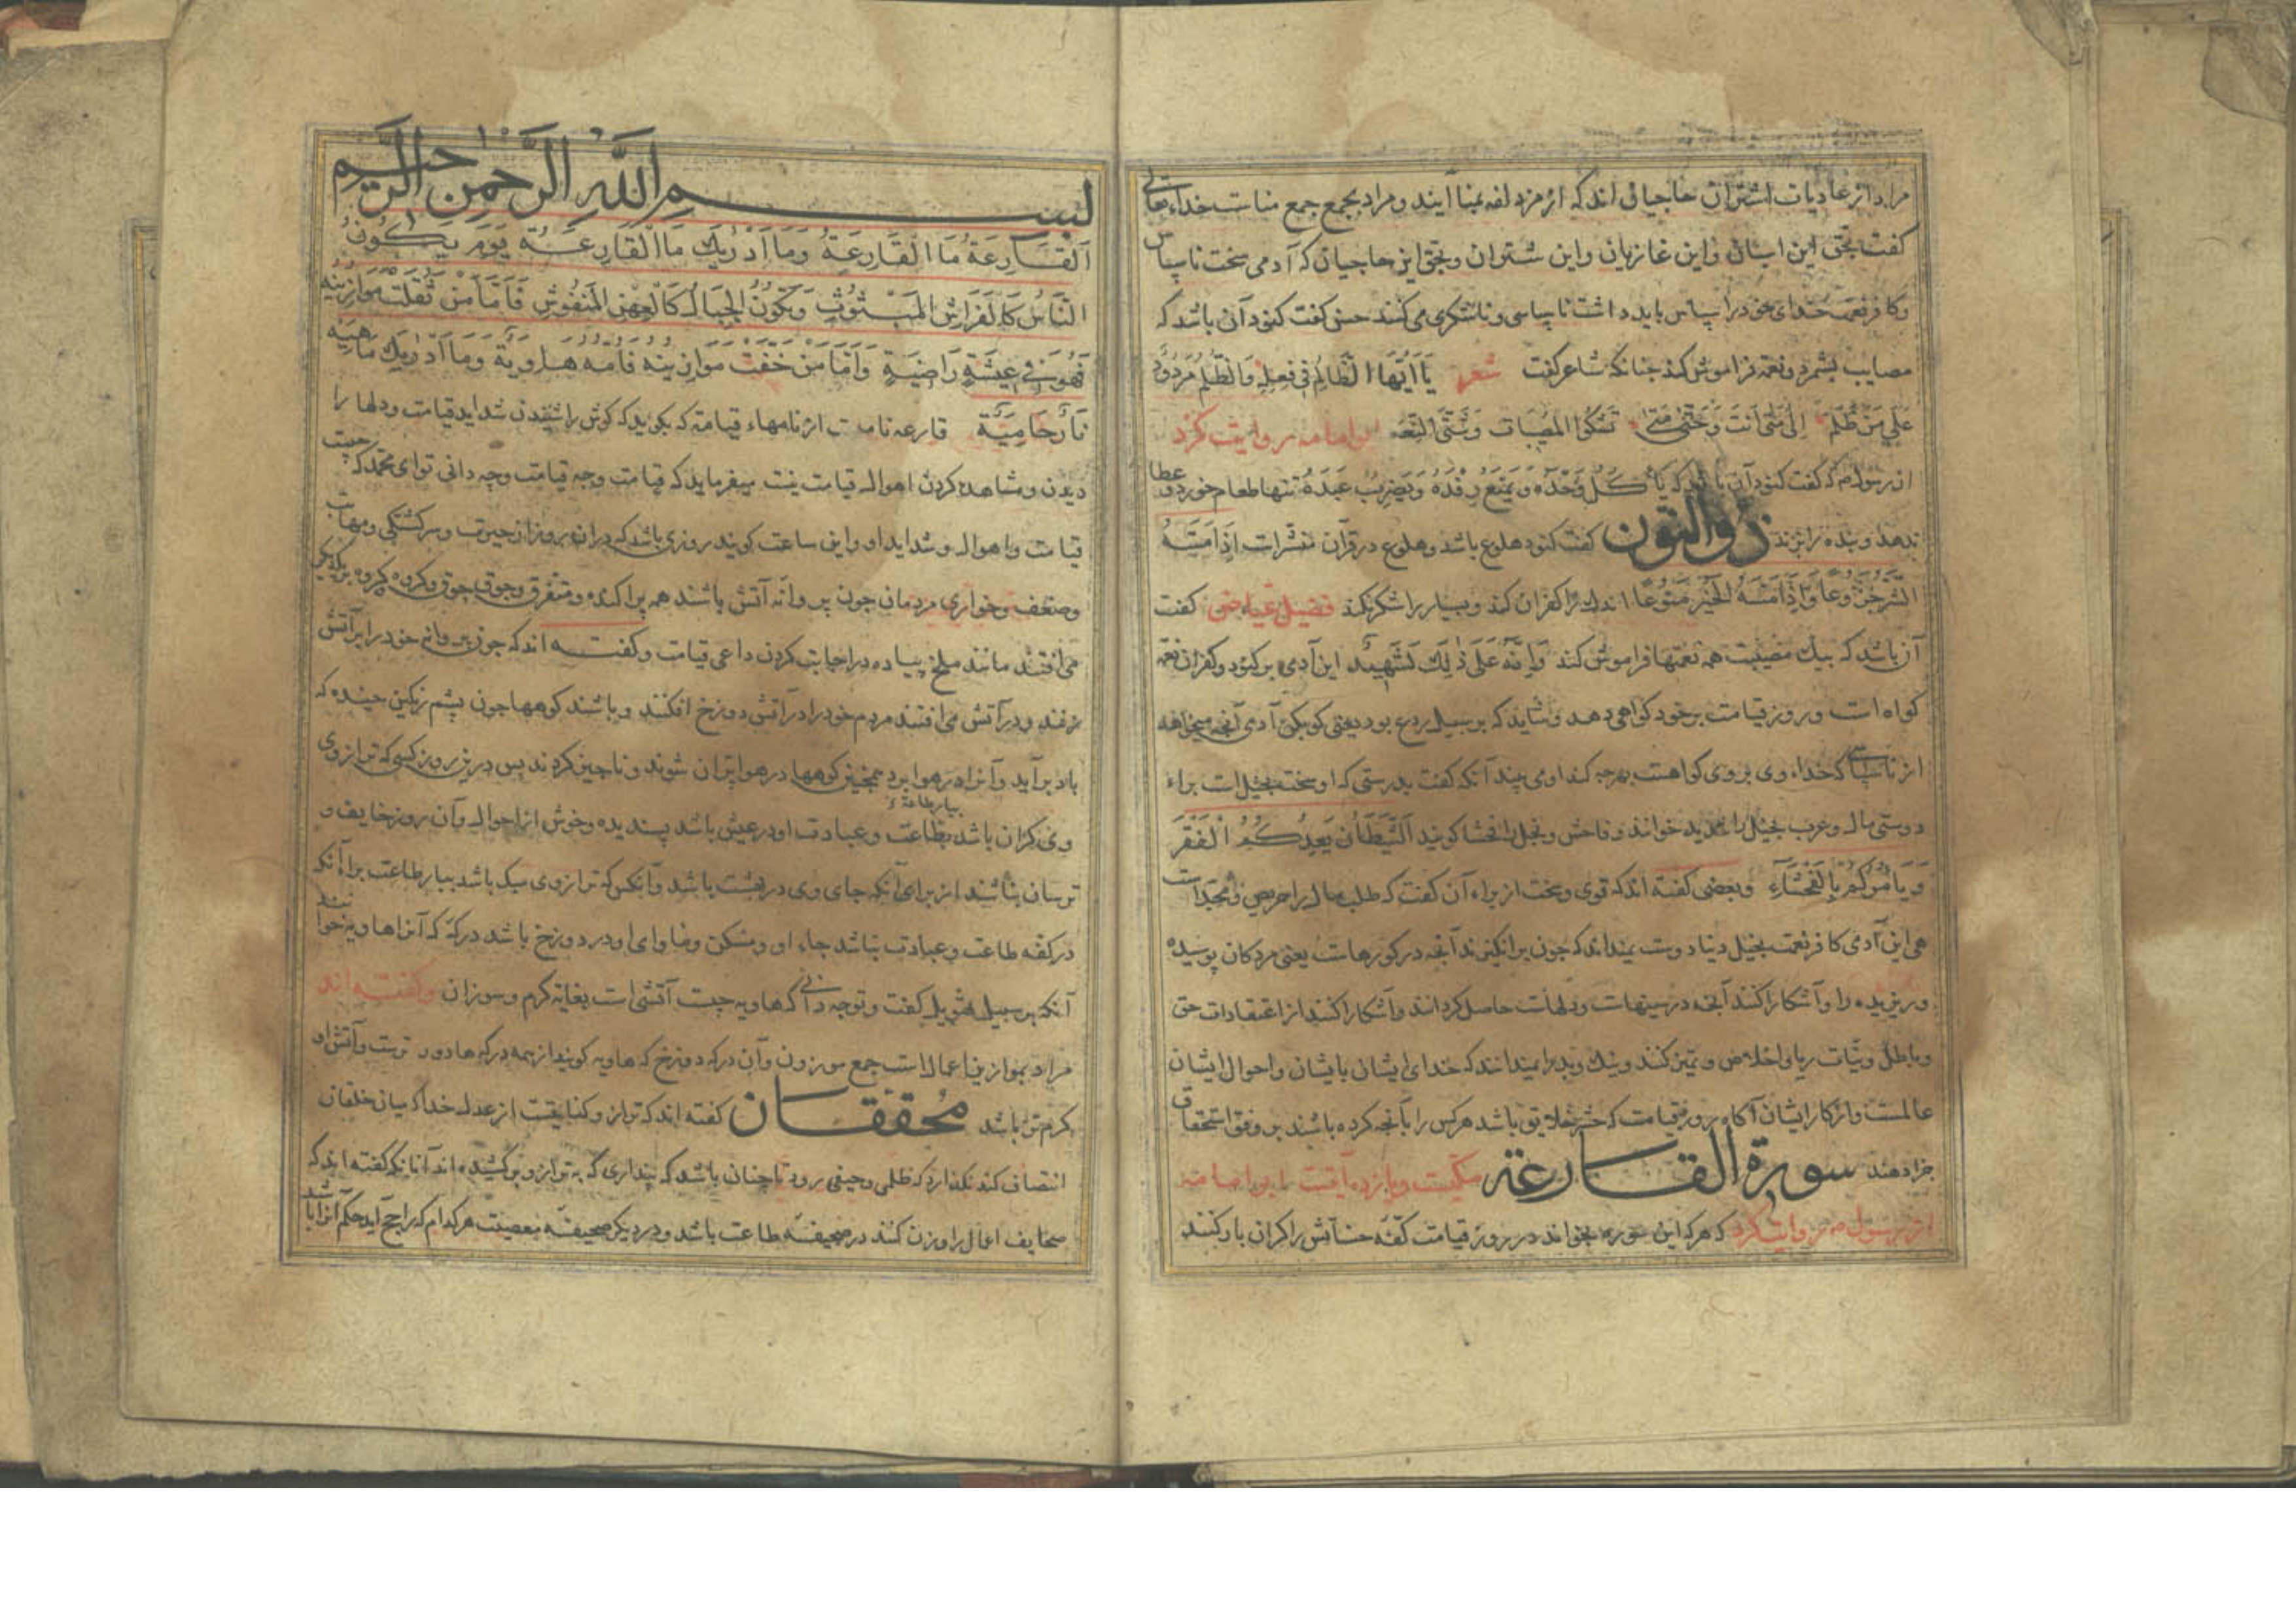 مراد از عادیات اشتران حاجیان اند که از مزدلفه بمنا آیند و مراد بجمع جمع مناست خداء تعالی
کفت بحق این اسبان و این غازیان و این شتران و بحق این حاجیان که آدمی سخت ناسپاس
و کافر نعمت خدای خود را سپاس باید داشت ناسپاسی و ناشکری می کنند حسن کفت کنود آن باشد که
مصایب بشمرد و نعمه فراموش کند جنانکه شاعر کفت شعر یَا اَیُّهَا الظَّالِمُ فِی فِعلِهِ وَالظُّلمُ مَردُودٌ
عَلَی مَن ظَلَم اِلَی مَتَی اَنتَ وَحَتَّی مَتَی تَشکُوا المُصِیبَات وَتَنسَی النِّعَم ابوامامه روایت کرد
از رسول م که کفت کنود آن باشد که یَأکُلُ وَحدَهُ وَیَمنَعُ رِفدَهُ وَیَضرِبُ عَبدَهُ تنها طعام خورد و عطا
ندهد و بنده را بزند ذوالنون کفت کنود هلوع باشد و هلوع در قرآن مفسرات اِذَا مَسَّهُ
الشَّرُّ جَزُوعًا وَاِذَا مَسَّهُ الخَیرُ مَنُوعًا اندک را کفران کند و بسیار را شکر نکند فضیل عیاض کفت
آن باشد که بیک مصیبت همه نعمتها فراموش کند وَاِنَّهُ عَلَی ذٰلِکَ لَشَهِیدٌ این آدمی بر کنود و کفران نعمه
کواه است و روز قیامت بر خود کواهی دهد و شاید که بر سبیل ردع بود یعنی کو بکن آدمی آنجه میخواهد
از ناسپاسی که خداء وی بر وی کواهست بهرجه کند او می بیند آنکه کفت بدرستی که او سخت بخیل است براء
دوستی مال و عرب بخیل را شدید خوانند و فاحش و بخل را فحشا کویند اَلشَّیطَانُ یَعِدُکُمُ الفَقرَ
وَیَأمُرُکُم بِالفَحشَاءِ و بعضی کفته اند که قوی و سخت از براء آن کفت که طلب مال را حریص و مجد است
هی این آدمی کافر نعمت بخیل دنیا دوست نمیداند که جون برانکیزند آنجه در کورهاست یعنی مردکان پوسیده
و ریزیده را و آشکارا کنند آنجه در سینهاست و دلهاست حاصل کردانند و آشکارا کنند از اعتقادات حق
و باطل و نیّات ریا و اخلاص و تمیز کنند و نیک و بد را نمیدانند که خدای ایشان بایشان و احوال ایشان
عالمست و از کار ایشان آکاه روز قیامت که حشر خلایق باشد هرکس را بآنجه کرده باشند بر وفق استحقاق
جزا دهند سورة القارعة مکیست و یازده آیتست ابوامامه
از رسول م روایت کرد که هرکه این سوره بخواند در روز قیامت کفّه حسناتش را کران بار کنند
بسم الله الرحمن الرحیم
اَلقَارِعَةُ مَا القَارِعَةُ وَمَا اَدرٰیکَ مَا القَارِعَةُ یَومَ یَکُونُ
النَّاسُ کَالفَرَاشِ المَبثُوثِ وَتَکُونُ الجِبَالُ کَالعِهنِ المَنفُوشِ فَاَمَّا مَن ثَقُلَت مَوَازِینُهُ
فَهُوَ فِی عِیشَةٍ رَاضِیَةٍ وَاَمَّا مَن خَفَّت مَوَازِینُهُ فَاُمُّهُ هَاوِیَةٌ وَمَا اَدرٰیکَ مَاهِیَه
نَارٌ حَامِیَةٌ قارعه نامیست از نامهاء قیامة که بکوبد که کوش را شنیدن شداید قیامت و دلها را
دیدن و مشاهده کردن اهوال قیامت میفرماید که قیامت وجه قیامت وجه دانی تو ای محمد که جیست
قیامت و اهوال و شداید او و این ساعت کویند روزی باشد که در آن روز از حیرت و سرکشتکی و مهابت
و ضعف و خواری مردمان جون پروانه آتش باشند همه پراکنده و متفرق و جوق جوق و کروه کروه بر یکدیکر
می افتند مانند ملخ پیاده در اجابت کردن داعی قیامت و کفته اند که جون پروانه خود را بر آتش
زنند و در آتش می افتند مردم خود را در آتش دوزخ افکنند و باشند کوهها جون پشم رنکین جیده که
باد برآید و آنرا در هوا برد همجنین کوهها در هوا پران شوند و ناجیز کردند پس درین روز کسی که ترازوی
وی کران باشد بطاعت و عبادت او در عیش باشد پسندیده و خوش از احوال و آن روز خایف و
ترسان نباشند از برای آنکه جای وی در بهشت باشد و آنکس که ترازوی سبک باشد بیبار طاعت براء آنکه
در کفّه طاعت و عبادت نباشد جاء او و مسکن و ماوای او در دوزخ باشد درکهٔ که آنرا هاویه خوانند
آنکه بر سبیل تهویل کفت و توجه دانی که هاویه جیست آتشی است بغایة کرم و سوزان و کفته اند
مراد بموازین اعمال است جمع موزون و آن درکه دوزخ که هاویه کویند از همه درکها دورترست و آتش او
کرم تر باشد محققان کفته اند که ترازو کنایتست از عدل خدا که میان خلقان
انتصاف کند نکذارد که ظلمی و حیفی رود تا جنان باشد که پنداری که بترازو برکشیده اند آنانکه کفته اند که
صحایف اعمال را وزن کنند در صحیفه طاعت باشد و در دیکر صحیفه معصیت هرکدام که راجح آید حکم آنرا باشد